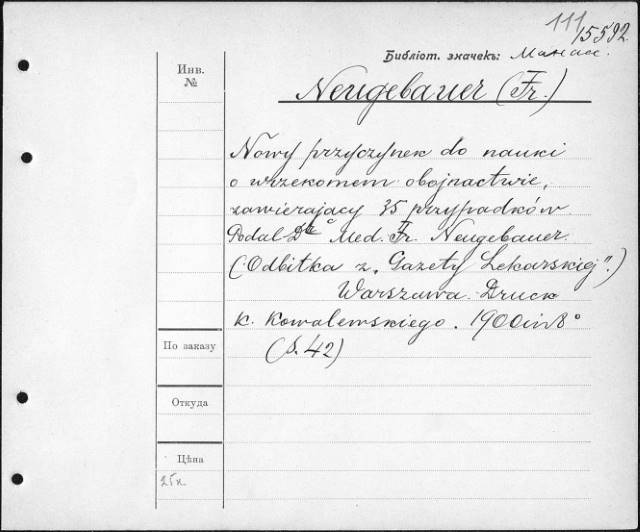 111
15592
Библіот. значекъ: Манас.
Инв.
№
Neugebauer (Fr.)
Nowy przyczynek do nauki
o wrzekomem obojnactwie,
zawierający 35 przypadków.
Podal Dr Med. Fr. Neugebauer.
(Odbitka z „Gazety Lekarskiej".)
Warszawa. Druck
K. Kowalewskiego. 1900 in 8°
(S. 42)
По заказу
Откуда
Цѣна